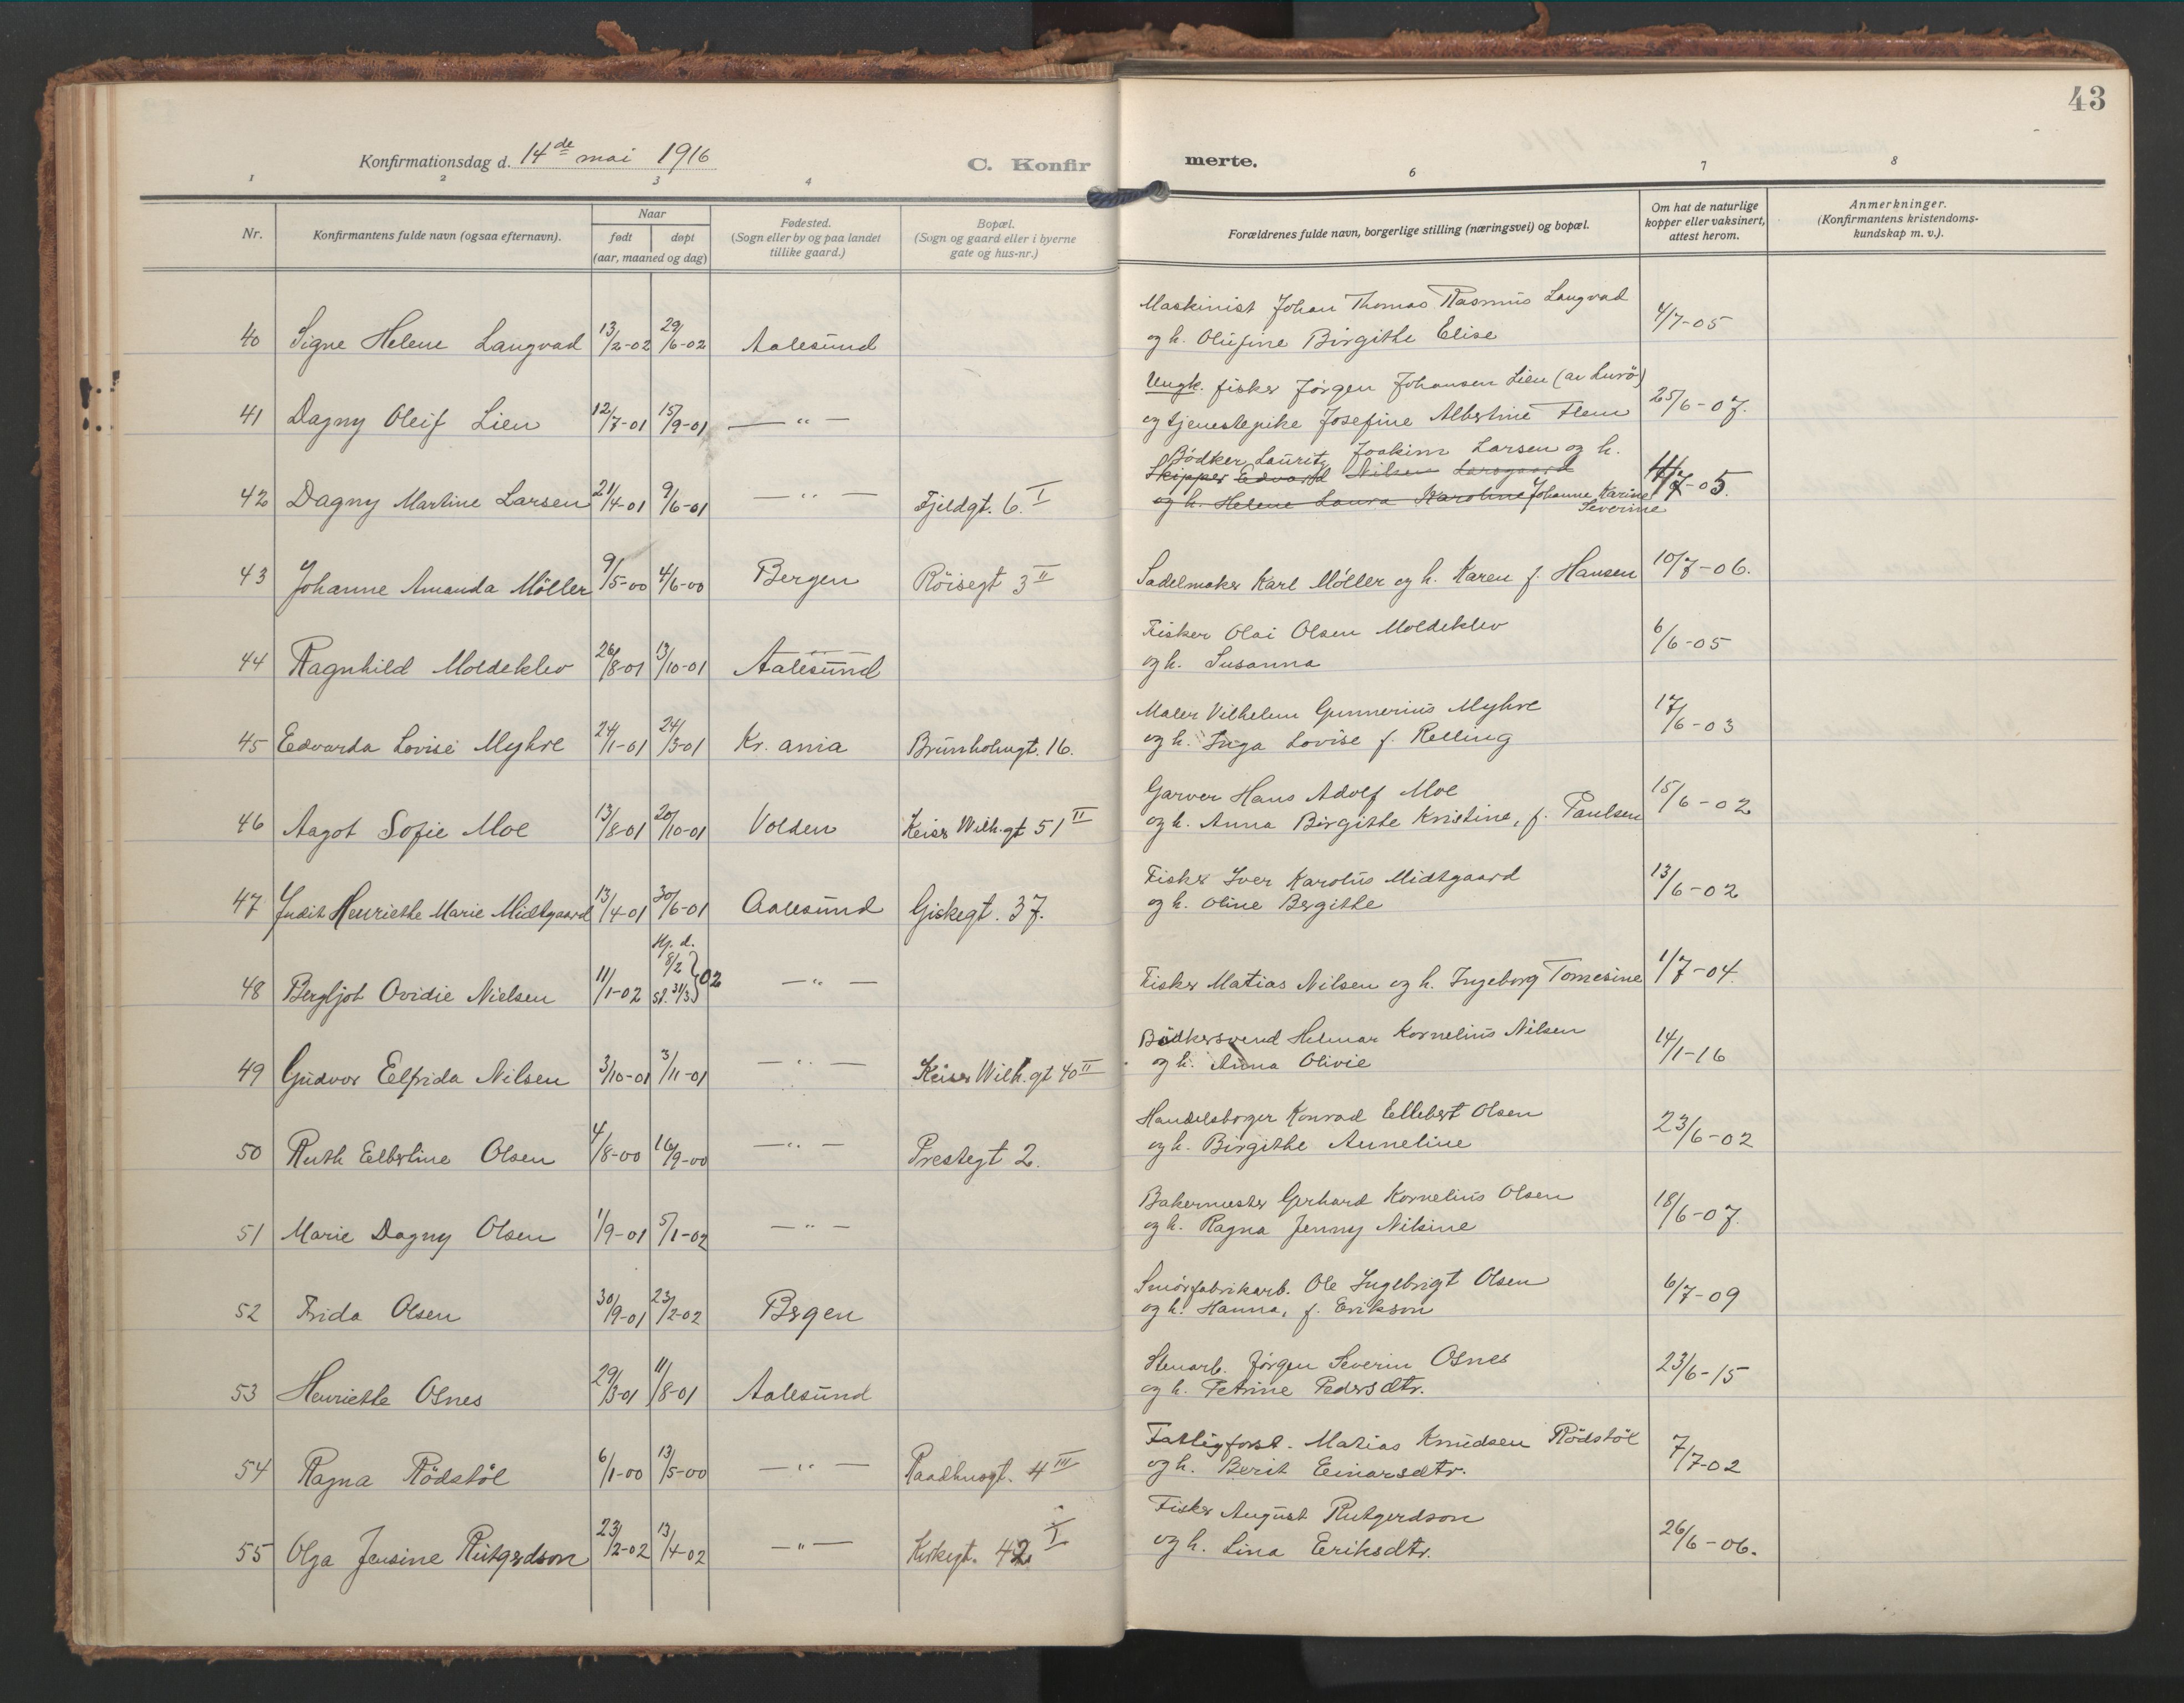 43
Konfirmationsdag d. 14de mai 1916
C. Konfirmerte.
1 2 3 4 6 7 8
Nr.
Konfirmantens fulde navn (ogsaa efternavn).
Naar
født døpt
(aar, maaned og dag)
Fødested.
(Sogn eller by og paa landet
tillike gaard.)
Bopæl.
(Sogn og gaard eller i byerne
gate og hus-nr.)
Forældrenes fulde navn, borgerlige stilling (næringsvei) og bopæl.
Om hat de naturlige
kopper eller vaksinert,
attest herom.
Anmerkninger.
(Konfirmantens kristendoms-
kundskap m. v.).
Maskinist Johan Thomas Rasmus Langvad
40 Signe Helene Langvad 13/2-02 29/6-02 Aalesund og h. Olufine Birgithe Elise 4/7-05
Ungk. fisker Jörgen Johansen Lien (av Lurö)
41 Dagny Oleif Lien 12/7-01 15/9-01 — " — og tjenestepike Josefine Albertine Flem 25/6-07.
Bödker Lauritz Joakim Larsen og h.
Skipper Edvard Nilsen Larsgaard
42 Dagny Martine Larsen 21/4-01 9/6-01 — " — Fjeldgt. 6. I og h. Helene Laura Karoline Johanne Karine /7-05.
Severine
43 Johanne Amanda Möller 9/5-00 4/6-00 Bergen Röisegt 3 II Sadelmaker Karl Möller og h. Karen f. Hansen 10/7-06.
Fisker Olai Olsen Moldeklev
44 Ragnhild Moldeklev 26/8-01 13/10-01 Aalesund og h. Susanna 6/6-05
Maler Vilhelm Gunnerius Myhre
45 Edvarda Lovise Myhre 24/1-01 24/3-01 Kr. ania Brunholmgt. 16. og h. Inga Lovise f. Relling 17/6-03
Garver Hans Adolf Moe
46 Aagot Sofie Moe 13/8-01 20/10-01 Volden Keiser Wilh. gt 51 II og h. Anna Birgithe Kristine, f. Paulsen 15/6-02
Fisker Iver Karolus Midtgaard
47 Judit Henriette Marie Midtgaard 13/4-01 30/6-01 Aalesund Giskegt. 37. og h. Oline Bergithe 13/6-02
Hj. d.
8/2 } 02
48 Bergljot Ovidie Nielsen 11/1-02 st. 31/3 — " — Fisker Matias Nilsen og h. Ingeborg Tomesine 1/7-04.
Bödkersvend Helmar Kornelius Nilsen
49 Gudvor Elfrida Nilsen 3/10-01 3/11-01 — " — Keiser Wilh. gt 40 II og h. Anna Olivie 14/1-16
Handelsborger Konrad Ellebert Olsen
50 Ruth Elbertine Olsen 4/8-00 16/9-00 — " — Prestegt 2. og h. Birgithe Anneline 23/6-02
Bakermester Gerhard Kornelius Olsen
51 Marie Dagny Olsen 1/9-01 5/1-02 — " — og h. Ragna Jenny Nilsine 18/6-07.
Smörfabrikarb. Ole Ingebrigt Olsen
52 Frida Olsen 30/9-01 23/2-02 Bergen og h. Hanna, f. Erikson 6/7-09
Stenarb. Jörgen Severin Osnes
53 Henriette Osnes 29/3-01 11/8-01 Aalesund og h. Petrine Pedersdtr. 23/6-15
Fattigforst. Matias Knudsen Rödstöl
54 Ragna Rödstöl 6/1-00 13/5-00 — " — Raadhusgt. 4 III og h. Berit Einarsdtr. 7/7-02
Fisker August Rutgerdson
55 Olga Jensine Rutgerdson 23/2-02 13/4-02 — " — Kirkegt. 42 I og h. Lina Eriksdtr. 26/6-06.